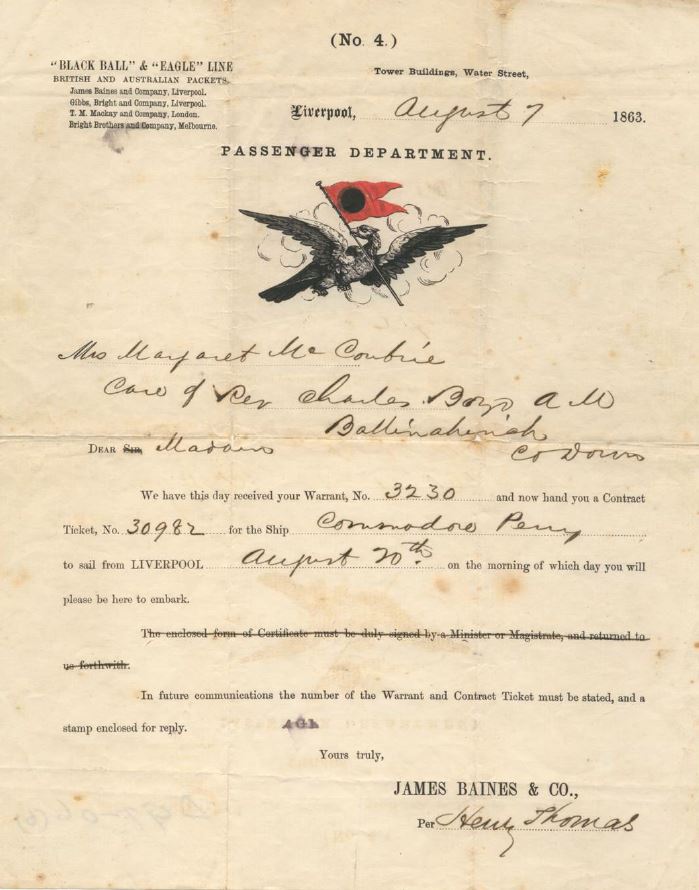 (No. 4.)
"BLACK BALL" & "EAGLE" LINE
BRITISH AND AUSTRALIAN PACKETS.
James Baines and Company, Liverpool.
Gibbs, Bright and Company, Liverpool.
T. M. Mackay and Company, London.
Bright Brothers and Company, Melbourne.
Tower Buildings, Water Street,
Liverpool, August 7 1863.
PASSENGER DEPARTMENT.
Mrs Margaret Mc Combrie
Care of Rev Charles Boyd A M
Ballinahinch
Co Down
DEAR Sir, Madam
We have this day received your Warrant, No. 3230 and now hand you a Contract
Ticket, No. 30982 for the Ship Commodore Perry
to sail from LIVERPOOL August 20th. on the morning of which day you will
please be here to embark.
The enclosed form of Certificate must be duly signed by a Minister or Magistrate, and returned to
us forthwith.
In future communications the number of the Warrant and Contract Ticket must be stated, and a
stamp enclosed for reply.
Yours truly,
JAMES BAINES & CO.,
Per Henry Thomas